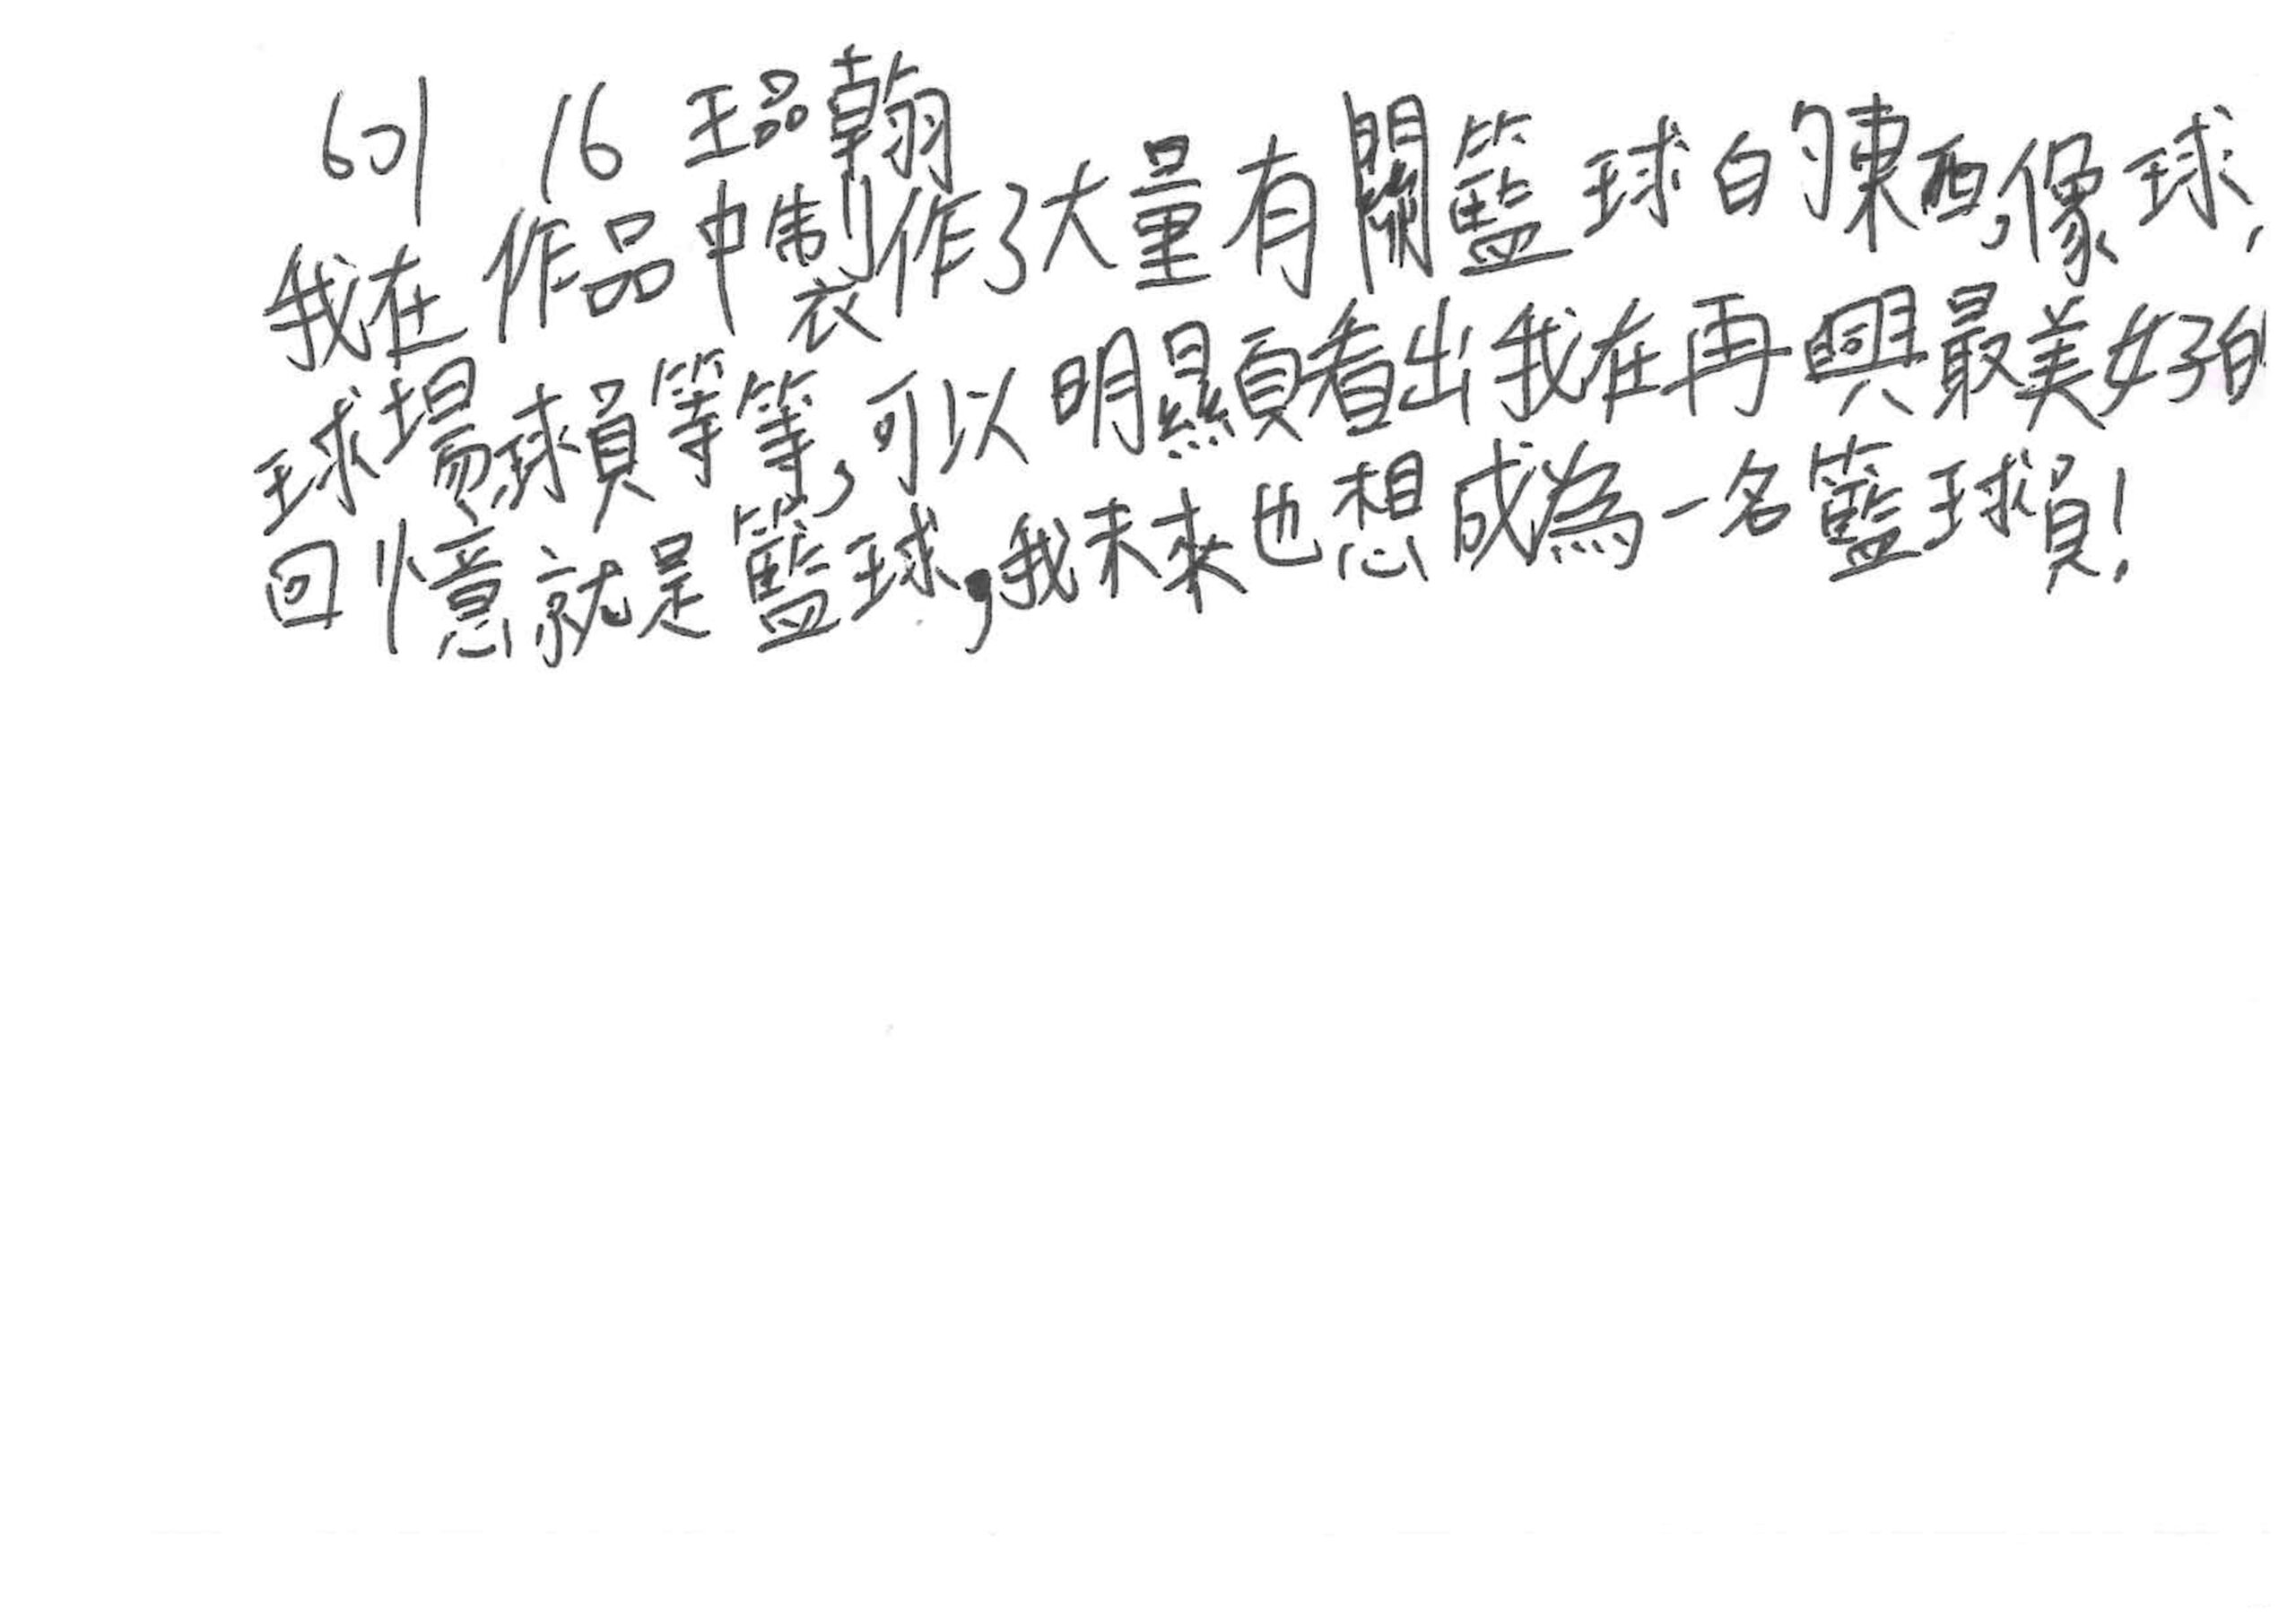 601 16 王品翰
我在作品中製作了大量有關籃球的東西,像球,
球場,球員等等,可以明顯看出我在再興最美好的
回憶就是籃球,我未來也想成為一名籃球員!